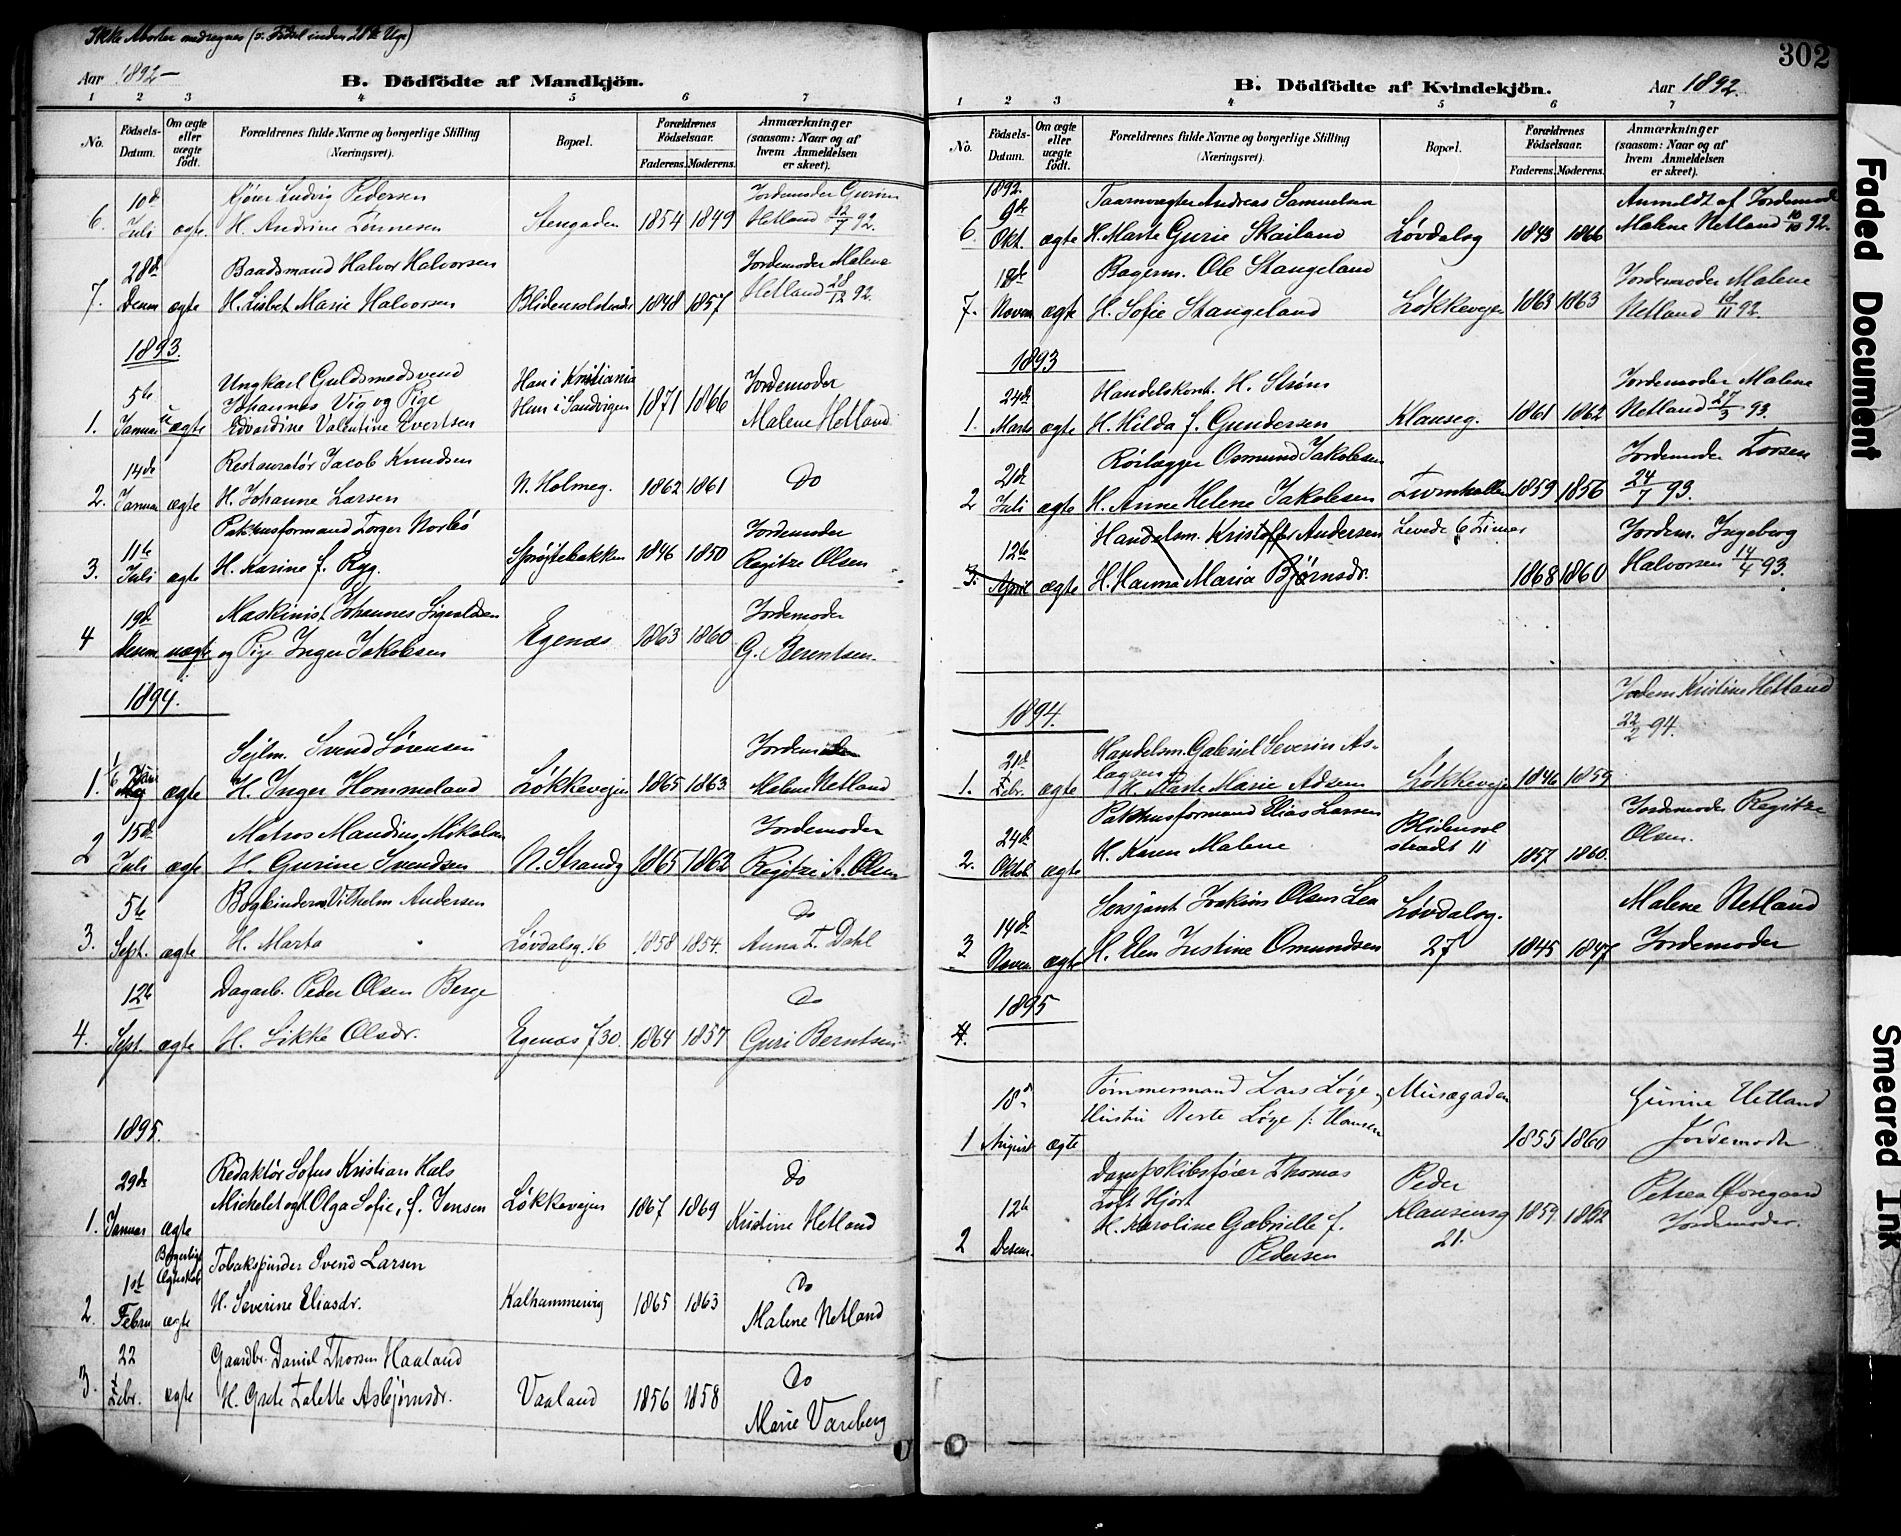 Ikke Aborter medregnes (ɔ: Födsel inden 28de Uge)
Aar 1892 –
B. Dödfödte af Mandkjön.
1 2 3 4 5 6 7
No. Födsels-Datum. Om ægte eller uægte født. Forældrenes fulde Navne og borgerlige Stilling (Næringsvei). Bopæl. Forældrenes Födselsaar. Faderens. Moderens. Anmærkninger (saasom: Naar og af hvem Anmeldelsen er skeet).
10de Ludvig Pedersen Jordemoder Gurine
6. Juli ægte. H. Andrine Tönnesen Stengaden 1854 1849 Hetland 12/7 92.
28de Baadsmand Halvor Halvorsen Jordemoder Malene
7. Desem ægte H. Lisbet Marie Halvorsen Blidensolstræde 1848 1857 Hetland 28/12 92.
1893.
5te Ungkarl Guldsmedsvend Han i Kristiania Jordemoder
Johannes Vig og Pige Hun i Sandvigen 1871 1866
1. Januar uægte Edvardine Valentine Evertsen Malene Hetland
14de Restauratør Jacob Knudsen
2. Januar ægte H. Johanne Larsen N. Holmeg. 1862 1861 Do
11te Pakhusformand Torger Norbö Jordemoder
3. Juli ægte H. Karine f. Ryg. Sprøjtebakken 1846 1850 Regitze Olsen
19de Maskinist Johannes Sigvaldsen Jordemoder
4 Desem uægte og Pige Inger Jakobsen Egenæs 1863 1860 G. Berentsen.
1894.
Sejlm. Svend Sørensen Jordemoder
1. 1/6 ægte H. Inger Hommeland Løkkevejen 1865 1863 Malene Hetland
15de Matros Maudius Mikalsen Jordemoder
2 Juli ægte H. Gurine Svendsen N. Strandg 1865 1862 Regitze A. Olsen
5te Bogbinderm Vilhelm Andersen do
3. Sept. ægte H. Marta Løvdalsg. 16 1858 1854. Anna T. Dahl
12te Dagarb. Peder Olsen Berge Do
4. Sept. ægte H. Sikke Olsdr. Egenæs 730. 1864 1857 Guri Berntsen
1895.
29de Redaktör Sofus Kristian Hals Do
Michelet og H. Olga Sofie, f. Jensen Løkkevejen 1867 1869
1. Januar ægte Kristine Hetland
Borgerlige Ægteskab Tobakspinder Svend Larsen
1st Do
2. Febru ægte H. Severine Eliasdr. Kalhammervig 1865 1863 Malene Hetland
22 Gaardbr. Daniel Thorsen Haaland Do
3. Febr. ægte H. Grete Talette Asbjørnsdr. Vaaland 1856 1858 Marie Vareberg
302
B. Dödfödte af Kvindekjön.
Aar 1892.
1 2 3 4 5 6 7
No. Födsels-Datum. Om ægte eller uægte födt. Forældrenes fulde Navne og borgerlige Stilling (Næringsvei). Bopæl. Forældrenes Födselsaar. Faderens. Moderens. Anmærkninger (saasom: Naar og af hvem Anmeldelsen er skeet).
1892.
9de Taarnvægter Andreas Samuelsen Anmeldt af Jordemod
6 Okt. ægte H. Marte Gurie Skailand Løvdalsg 1843 1866 Malene Hetland 10/10 92.
18de Bagerm. Ole Stangeland Jordemoder Malene
7. Novem ægte H. Sofie Stangeland Løkkevejen 1863 1863 Hetland 18/11 92.
1893
24de Handelskont. H. Strøm Jordemoder Malene
1. Marts ægte H. Hilda f. Gundersen Klauseg. 1861 1862 Hetland 27/3 93.
21de Rörlægger Osmund Jakobsen Jordemoder Torsen
2 Juli ægte H. Anne Helene Jakobsen Turnhallen 1859 1856 24/7 93.
12te Handelsm. Kristoffer Andersen Levede 6 Timer Jordem. Ingeborg
3. April ægte H. Hanna Maria Bjørnsdr. 1868 1860 Halvorsen 14/4 93.
1894. Jordem Kristine Hetland
22/2 94.
21de Handelsm. Gabriel Severin As-
lagsen
1. Febr. ægte H. Marte Marie Adsen Løkkeveje 1846 1859
24de Pakhusformand Elias Larsen Blidensol Jordemoder Regitze
2. Oktob ægte H. Karen Malene strædt 11 1857 1860. Olsen.
14de Sersjant Joakim Olsen Lea Løvdalsg. Malene Hetland
3 Novem ægte H. Elen Justine Omundsen 27 1845 1847 Jordemoder
1895
4.
18de Tömmermand Lars Löge, Musægaden Gurine Hetland
Hustru Berte Löge f. Hansen
1 August ægte 1855 1860 Jordemoder
Dampskibsfører Thomas Peder Petrea Øvregaard
12te Toft Hjort Klausensg 1859 1862 Jordemoder.
H. Karoline Gabrielle f. 21.
2 Desem. Pedersen
Faded Document
Smeared Ink